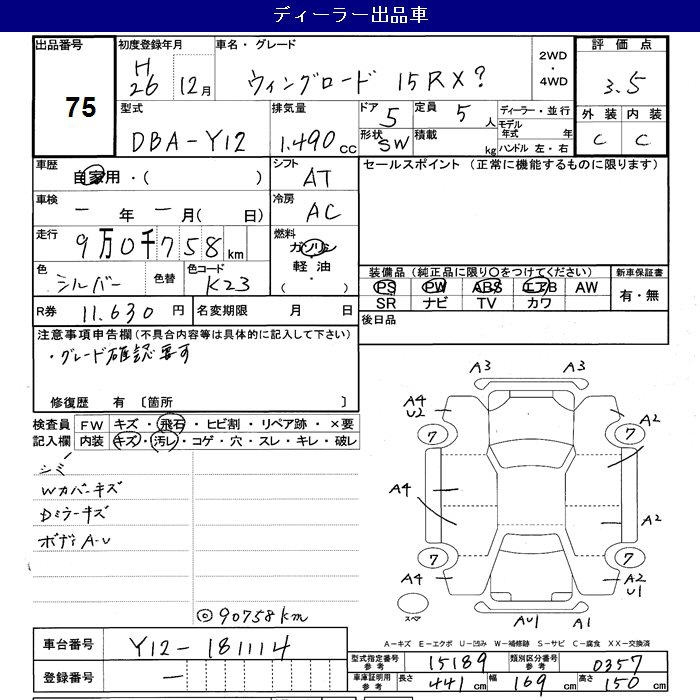 ディーラー出品車
出品番号 75
初度登録年月 H26 12月
車名・グレード ウィングロード 15RX?
2WD・4WD
評価点 3.5
外装 C 内装 C
型式 DBA-Y12
排気量 1.490cc
ドア 5
形状 SW
定員 5人
積載 kg
ディーラー・並行
モデル年式 年
ハンドル 左・右
車歴 自家用・( )
シフト AT
セールスポイント (正常に機能するものに限ります)
車検 ー年ー月( 日)
冷房 AC
走行 9万0千758km
燃料 ガソリン 軽油・( )
色 シルバー 色替
色コード K23
装備品(純正品に限り○をつけてください)
新車保証書
PS PW ABS エアB AW
SR ナビ TV カワ
有・無
R券 11.630円
名変期限 月 日
後日品
注意事項申告欄(不具合内容等は具体的に記入して下さい)
・グレード確認要す
修復歴 有 〔箇所 〕
検査員記入欄
FW キズ・飛石・ヒビ割・リペア跡・×要
内装 キズ・汚レ・コゲ・穴・スレ・キレ・破レ
シミ
Wカバーキズ
Dミラーキズ
ボディA-U
◎90758km
A3 A3
A4
U2
A2
7 7
A4
A2
7 7
A4
A2
U1
スペア
AU1 A1
A-キズ E-エクボ U-凹み W-補修跡 S-サビ C-腐食 XX-交換済
車台番号 Y12-181114
登録番号 ー
型式指定番号 参考 15189
類別区分番号 参考 0357
車庫証明用 参考 長さ 441cm 幅 169cm 高さ 150cm